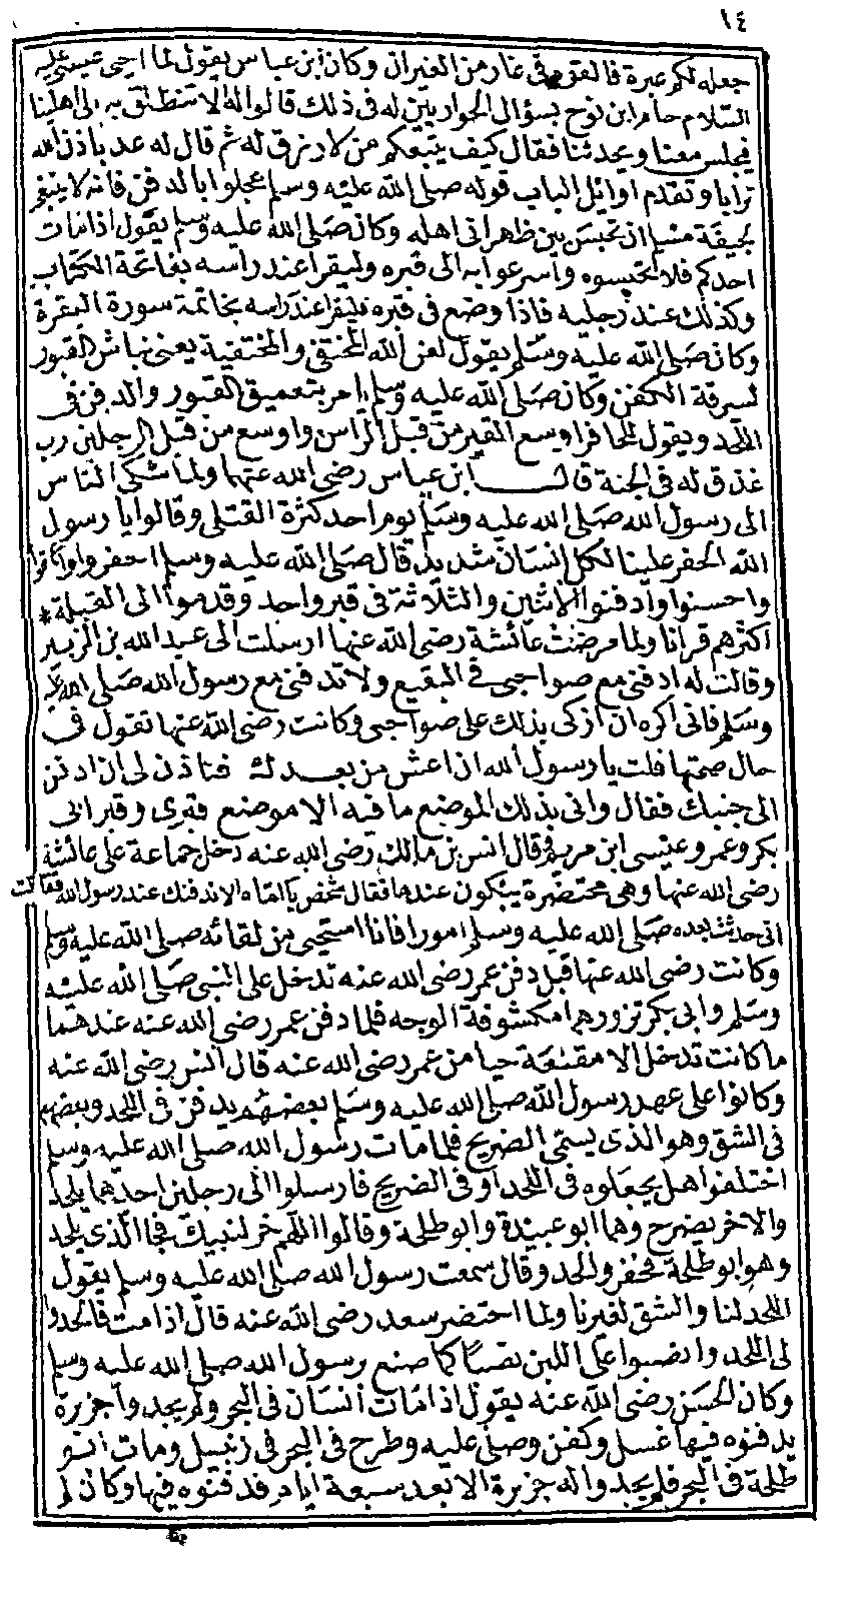 ١٤
جعله لكم عبرة فالقوم في غار من الغيران وكان ابن عباس يقول لما احيى عيسى عليه
السلام حام ابن نوح بسؤال الحواريين له في ذلك قالوا له الا تنطلق به الى اهلينا
فيجلس معنا ويحدثنا فقال كيف يتبعكم من لا رزق له ثم قال له عد باذن الله
ترابا وتقدم اوائل الباب قوله صلى الله عليه وسلم عجلوا بالدفن فانه لا ينبغي
لجيفة مسلم ان تحبس بين ظهراني اهله وكان صلى الله عليه وسلم يقول اذا مات
احدكم فلا تحبسوه واسرعوا به الى قبره وليقرا عند راسه بفاتحة الكتاب
وكذلك عند رجليه فاذا وضع في قبره فليقرا عند راسه بخاتمة سورة البقرة
وكان صلى الله عليه وسلم يقول لعن الله المختفي والمختفية يعني نباش القبور
لسرقة الكفن وكان صلى الله عليه وسلم يامر بتعميق القبور والدفن في
اللحد ويقول للحافر اوسع القبر من قبل الراس واوسع من قبل الرجلين رب
عذق له في الجنة قالــ ابن عباس رضى الله عنهما ولما شكى الناس
الى رسول الله صلى الله عليه وسلم يوم احد كثرة القتلى وقالوا يا رسول
الله الحفر علينا لكل انسان شديد قال صلى الله عليه وسلم احفروا واعمقوا
واحسنوا وادفنوا الاثنين والثلاثة في قبر واحد وقدموا الى القبلة *
اكثرهم قرانا ولما مرضت عائشة رضى الله عنها ارسلت الى عبد الله بن الزبير
وقالت له ادفني مع صواحبي في البقيع ولا تدفني مع رسول الله صلى الله عليه
وسلم فاني اكره ان ازكى بذلك على صواحبي وكانت رضى الله عنها تقول في
حال صحتها قلت يا رسول الله اذا عش من بعدك فتاذن لي ان ادفن
الى جنبك فقال واني بذلك الموضع ما فيه الا موضع قبري وقبر ابي
بكر وعمر وعيسى ابن مريم قال انس بن مالك رضى الله عنه دخل جماعة على عائشة
رضى الله عنها وهي محتضرة يبكون عندها فقال شخص يا اماه الا ندفنك عند رسول الله فقالت
اني حدثت بعده صلى الله عليه وسلم امورا فانا استحيي من لقائه صلى الله عليه وسلم
وكانت رضى الله عنها قبل دفن عمر رضى الله عنه تدخل على النبي صلى الله عليه
وسلم وابي بكر تزورهما مكشوفة الوجه فلما دفن عمر رضى الله عنه عندهما
ما كانت تدخل الا مقنعة حيا من عمر رضى الله عنه قال انس رضى الله عنه
وكانوا على عهد رسول الله صلى الله عليه وسلم بعضهم يدفن في اللحد وبعضهم
في الشق وهو الذي يسمى الضريح فلما مات رسول الله صلى الله عليه وسلم
اختلفوا هل يجعلوه في اللحد او في الضريح فارسلوا الى رجلين احدهما يلحد
والاخر يضرح وهما ابو عبيدة وابو طلحة وقالوا اللهم خر لنبيك فجا الذي يلحد
وهو ابو طلحة فحفر والحد وقال سمعت رسول الله صلى الله عليه وسلم يقول
اللحد لنا والشق لغيرنا ولما احتضر سعد رضى الله عنه قال اذا مت فالحدوا
لي اللحد وانصبوا على اللبن نصبا كما صنع برسول الله صلى الله عليه وسلم
وكان الحسن رضى الله عنه يقول اذا مات انسان في البحر ولم يجدوا جزيرة
يدفنوه فيها غسل وكفن وصلى عليه وطرح في البحر في زنبيل ومات ابو
طلحة في البحر فلم يجدوا له جزيرة الا بعد سبعة ايام فدفنوه فيها وكان لم